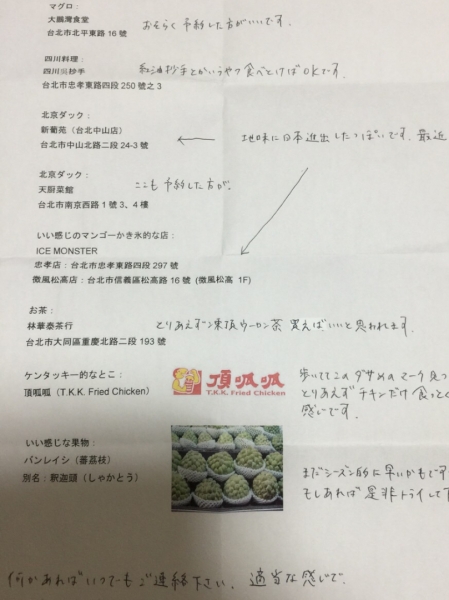 マグロ：
大鵬灣食堂
台北市北平東路 16 號
おそらく予約した方がいいです。
四川料理：
四川吳抄手
台北市忠孝東路四段 250 號之 3
紅油抄手とかいうやつ食べとけばOKです。
北京ダック：
新葡苑（台北中山店）
台北市中山北路二段 24-3 號
地味に日本進出したっぽいです、最近
北京ダック：
天厨菜館
台北市南京西路 1 號 3、4 樓
ここも予約した方が。
いい感じのマンゴーかき氷的な店：
ICE MONSTER
忠孝店：台北市忠孝東路四段 297 號
微風松高店：台北市信義區松高路 16 號 (微風松高 1F)
お茶：
林華泰茶行
台北市大同區重慶北路二段 193 號
とりあえず凍頂ウーロン茶 買えばいいと思われます。
ケンタッキー的なとこ：
頂呱呱（T.K.K. Fried Chicken）
頂呱呱
T.K.K. Fried Chicken
歩いててこのダサめのマーク見つ
とりあえずチキンだけ食ってく
感じです。
いい感じな果物：
バンレイシ（蕃荔枝）
別名：釈迦頭（しゃかとう）
まだシーズン的に早いかもです
もしあれば是非トライして下
何かあればいつでもご連絡下さい。適当な感じで。